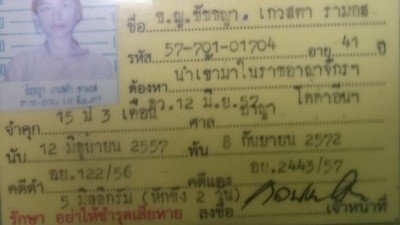 ชื่อ ข.ญ.ชัชชญา. เกวสตา รามอส
รหัส 57-701-01704 อายุ 41 ปี
ต้องหา นำเข้ามาในราชอาณาจักรฯ
12 มิ.ย.57 โคคาอีนฯ
จำคุก 15 ปี 3 เดือน ศาล อาญา
นับ 12 มิถุนายน 2557 พ้น 8 กันยายน 2572
คดีดำ อย.122/56 คดีแดง อย.2443/57
5 มิลลิกรัม (หักขัง 2 วัน)
รักษา อย่าให้ชำรุดเสียหาย ลงชื่อ เจ้าหน้าที่